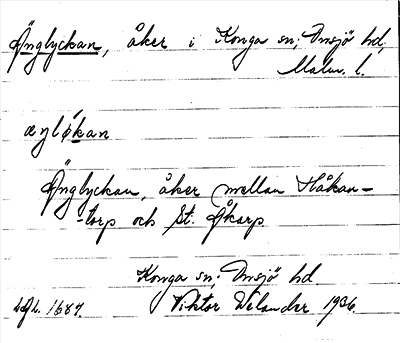 Änglyckan, åker i Konga sn; Onsjö hd,
Malm. l.
æŋlýkan
Änglyckan, åker mellan Håkan-
-torp och St. Åkarp.
Konga sn; Onsjö hd
1687. Viktor Welander 1936.